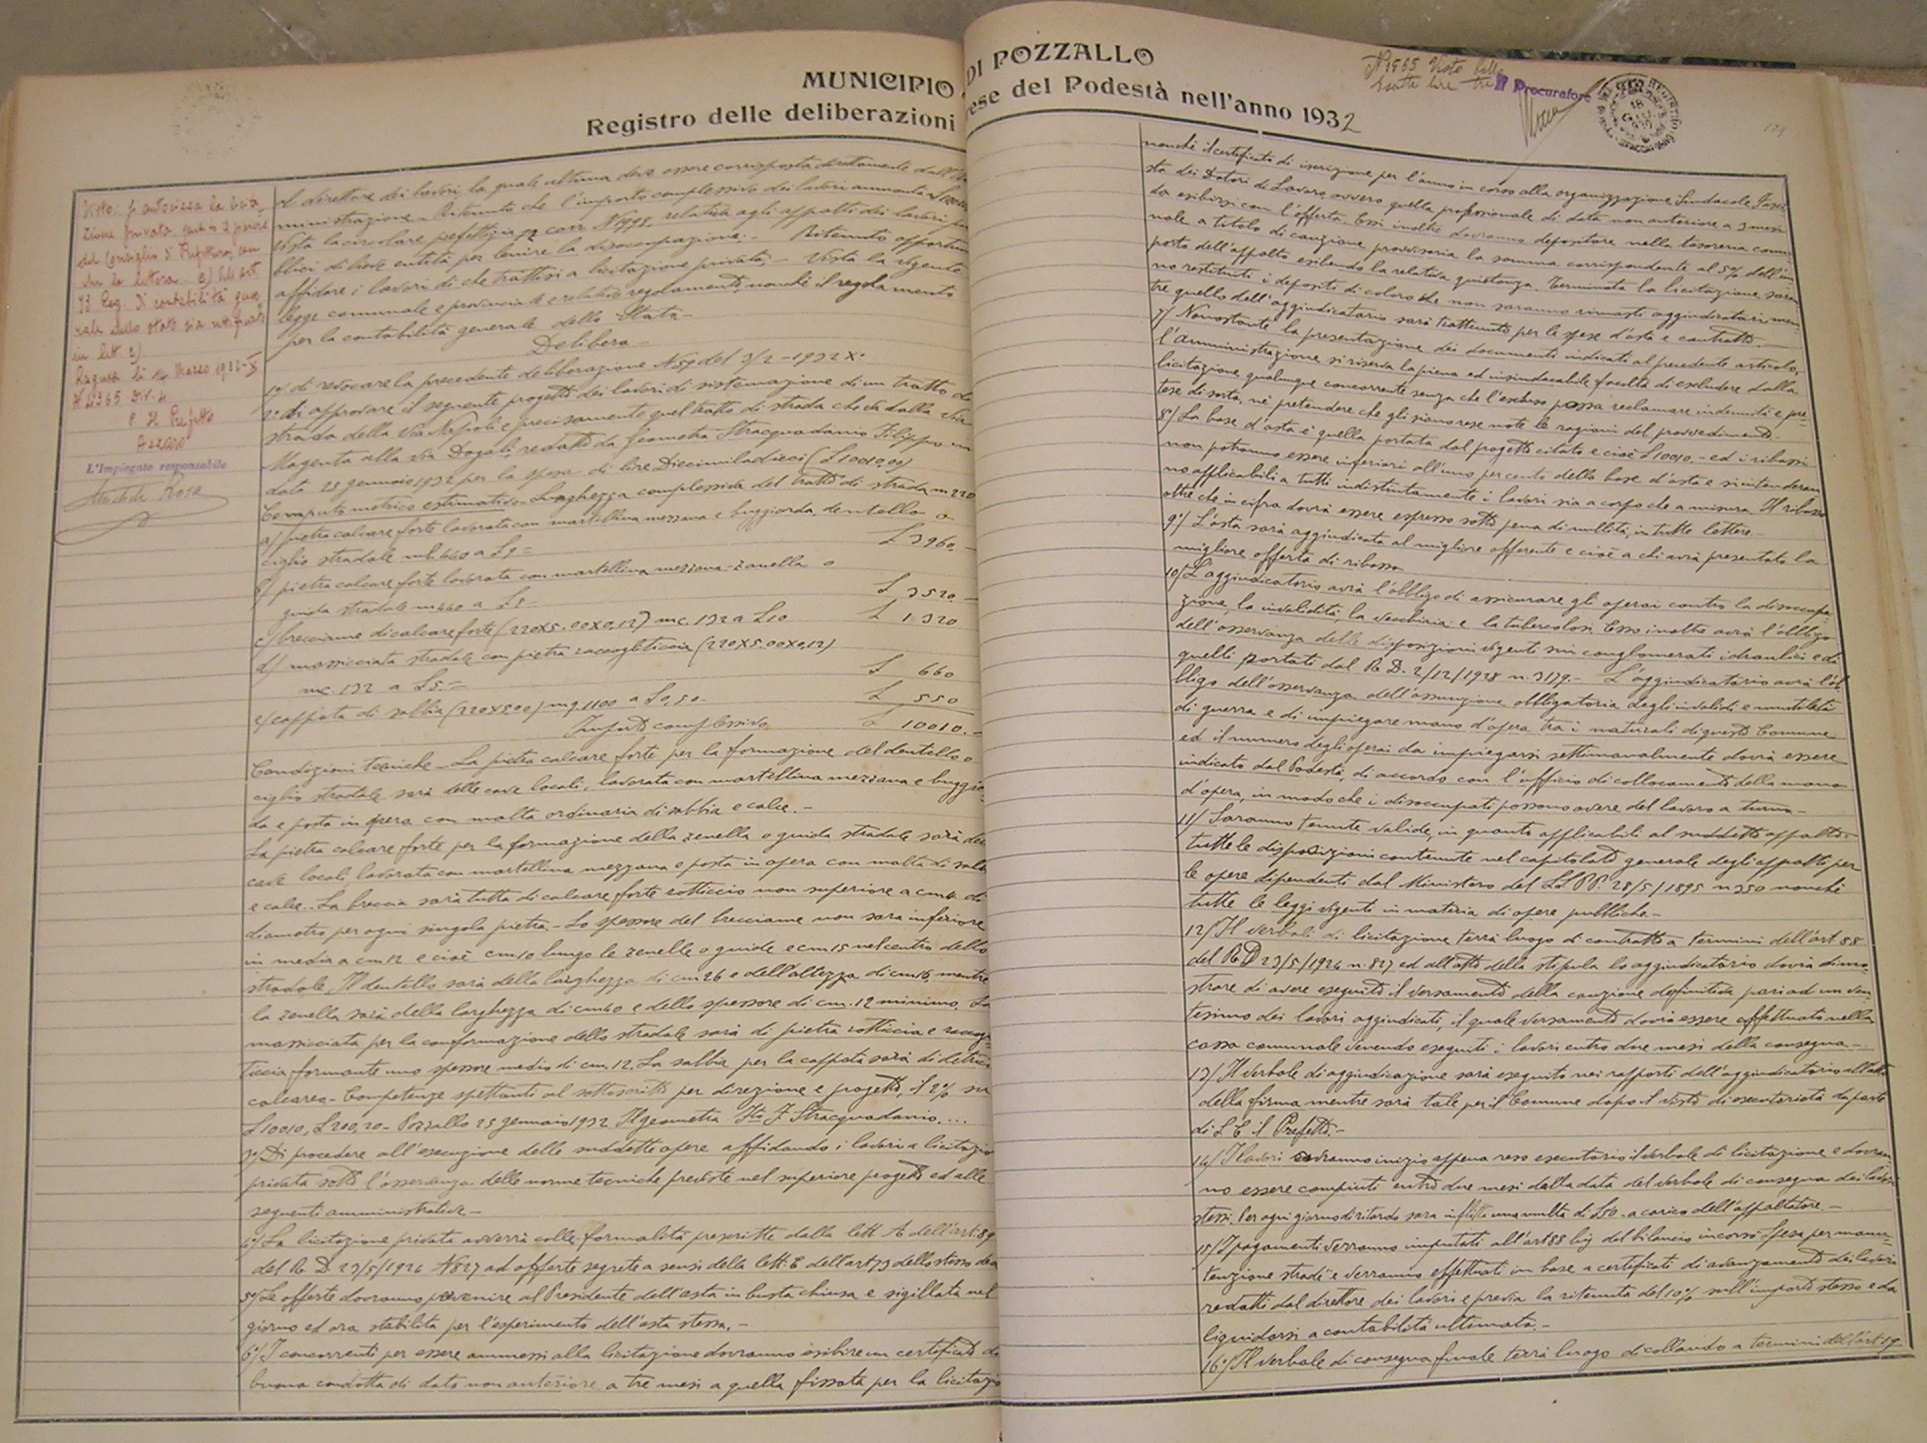 MUNICIPIO DI POZZALLO
Registro delle deliberazioni prese del Podestà nell'anno 1932
Visto: si autorizza la licita-
zione privata
del Consiglio di Prefettura, con
Reg. di contabilità gene-
rale dello Stato sia
Ragusa li Marzo 1932-X
N 4365 Div. 4
p. Il Prefetto
Azzaro
L'Impiegato responsabile
al direttore dei lavori la quale ultima deve essere corrisposta direttamente dall'
ministrazione - Ritenuto che l'importo complessivo dei lavori ammonta a
Vista la circolare prefettizia relativa agli appalti dei lavori pu
blici di lieve entità per lenire la disoccupazione; - Ritenuto opportuno
affidare i lavori di che trattasi a licitazione privata; - Vista la vigente
legge comunale e provinciale e relativo regolamento, nonchè il regolamento
per la contabilità generale dello Stato -
Delibera -
1°) di revocare la precedente deliberazione N 59 del 3/2-1932 X°
2° di approvare il seguente progetto dei lavori di sistemazione di un tratto di
strada della Via Napoli e precisamente quel tratto di strada che và dalla Via
Magenta alla Via Dogali, redatto da Geometra Stracquadanio Filippo in
data 25 gennaio 1932 per la spesa di lire Diecimiladieci (£10010,00)
Computo metrico estimativo - Lunghezza complessiva del tratto di strada m 220
a) pietra calcare forte lavorata con martellina mezzana e buggiarda, dentello o
ciglio stradale ml. 440 a £ 9 = £ 3960. -
b) pietra calcare forte lavorata con martellina mezzana - zanella o
guida stradale m 440 a £ 8 - £ 3520. -
c) brecciame di calcare forte (220x5.00x0,12) mc. 132 a £ 10 £ 1320
d) massicciata stradale con pietra raccogliticcia (220x5.00x0,12)
mc. 132 a £ 5. - £ 660
e) cappata di sabbia (220x5.00) mq. 1100 a £ 0,50 - £ 550
Importo complessivo £ 10010. -
Condizioni tecniche - La pietra calcare forte per la formazione del dentello o
ciglio stradale sarà delle cave locali, lavorata con martellina mezzana e buggiar
da e posta in opera con malta ordinaria di sabbia e calce. -
La pietra calcare forte per la formazione della zanella o guida stradale sarà delle
cave locali lavorata con martellina mezzana e posta in opera con malta di sabbia
e calce. - La breccia sarà tutta di calcare forte rotticcio non superiore a cm 4 di
diametro per ogni singola pietra. - Lo spessore del brecciame non sarà inferiore
in media a cm 12 e cioè cm 10 lungo le zanelle o guide e cm 15 nel centro dello
stradale. Il dentello sarà della larghezza di cm 26 e dell'altezza di cm 18, mentre
la zanella sarà della larghezza di cm 40 e dello spessore di cm. 12 minimo. La
massicciata per la conformazione dello stradale sarà di pietra rotticcia e raccogli
ticcia formante uno spessore medio di cm 12. La sabbia per la cappata sarà di detriti
calcarea - Competenze spettanti al sottoscritto per direzione e progetto, il 2% su
£ 10010, £ 200,20 - Pozzallo 25 gennaio 1932 Il geometra F.to F. Stracquadanio. ...
3°) Di procedere all'esecuzione delle suddette opere affidando i lavori a licitazione
privata sotto l'osservanza delle norme tecniche previste nel superiore progetto ed alle
seguenti amministrative -
4°) La licitazione privata avverrà colle formalità prescritte dalla lett A dell'art. 89
del R. D. 23/5/1924 N 827 ad offerte segrete a sensi della lett. E dell'art 73 dello stesso
5°) Le offerte dovranno pervenire al Presidente dell'asta in busta chiusa e sigillata nel
giorno ed ora stabilita per l'esperimento dell'asta stessa. -
6°) I concorrenti per essere ammessi alla licitazione dovranno esibire un certificato di
buona condotta di data non anteriore a tre mesi a quella fissata per la licitazione
N 1965 Visto bollo
Esatte lire tre
Il Procuratore
nonchè il certificato di iscrizione per l'anno in corso alla organizzazione Sindacale Fasci-
sta dei Datori di Lavoro, ovvero quella professionale di data non anteriore a 3 mesi
da esibirsi con l'offerta. Essi inoltre dovranno depositare nella tesoreria comu-
nale a titolo di cauzione provvisoria la somma corrispondente al 5% dell'im
porto dell'appalto esibendo la relativa quietanza. Terminata la licitazione saran
no restituiti i depositi di coloro che non saranno rimasti aggiudicatari men-
tre quello dell'aggiudicatario sarà trattenuto per le spese d'asta e contratto. -
7°/ Nonostante la presentazione dei documenti indicati al precedente articolo,
l'amministrazione si riserva la piena ed insindacabile facoltà di escludere dalla
licitazione qualunque concorrente senza che l'escluso possa reclamare indennità e pre-
tese di sorta, nè pretendere che gli siano rese note le ragioni del provvedimento. -
8°/ La base d'asta è quella portata dal progetto citato e cioè £ 10010. - ed i ribassi
non potranno essere inferiori all'uno per cento della base d'asta e si intenderan
no applicabili a tutti indistintamente i lavori sia a corpo che a misura. Il ribasso
oltre che in cifra dovrà essere espresso sotto pena di nullità, in tutte lettere. -
9°/ L'asta sarà aggiudicata al migliore offerente e cioè a chi avrà presentato la
migliore offerta di ribasso
10/ L'aggiudicatario avrà l'obbligo di assicurare gli operai contro la disoccupa-
zione, la invalidità, la vecchiaia e la tubercolosi. Esso inoltre avrà l'obbligo
dell'osservanza delle disposizioni vigenti sui conglomerati idraulici e di
quelli portati dal R. D. 2/12/1928 n. 3179. - L'aggiudicatario avrà l'ob
bligo dell'osservanza dell'assunzione obbligatoria degli invalidi e mutilati
di guerra e di impiegare mano d'opera tra i naturali di questo Comune
ed il numero degli operai da impiegarsi settimanalmente dovrà essere
indicato dal Podestà, di accordo con l'ufficio di collocamento della mano
d'opera, in modo che i disoccupati possono avere del lavoro a turno -
11/ Saranno tenute valide, in quanto applicabili al suddetto appalto
tutte le disposizioni contenute nel capitolato generale degli appalti per
le opere dipendenti dal Ministero dei LL. PP. 28/5/1895 n 350 nonchè
tutte le leggi vigenti in materia di opere pubbliche -
12/ Il verbale di licitazione terrà luogo di contratto a termini dell'art. 88
del R D 23/5/1924 n. 827 ed all'atto della stipula lo aggiudicatario dovrà dimo-
strare di avere eseguito il versamento della cauzione definitiva pari ad un ven-
tesimo dei lavori aggiudicati, il quale versamento dovrà essere effettuato nella
cassa comunale venendo eseguiti i lavori entro due mesi della consegna -
13/ Il verbale di aggiudicazione sarà eseguito nei rapporti dell'aggiudicatario all'atto
della firma mentre sarà tale per il Comune dopo il visto di esecutorietà da parte
di S. E. il Prefetto. -
14/ I lavori avranno inizio appena reso esecutorio il verbale di licitazione e dovran-
no essere compiuti entro due mesi dalla data del verbale di consegna dei lavori
stessi. Per ogni giorno di ritardo sarà inflitta una multa di £ 50. - a carico dell'appaltatore -
15/ I pagamenti verranno imputati all'art 88 del bilancio in corso Spesa per manu-
tenzione strade e verranno effettuati in base a certificati di avanzamento dei lavori
redatti dal direttore dei lavori e previa la ritenuta del 10% sull'importo stesso e da
liquidarsi a contabilità ultimata. -
16°/ Il verbale di consegna finale terrà luogo di collaudo a termini dell'art. 19